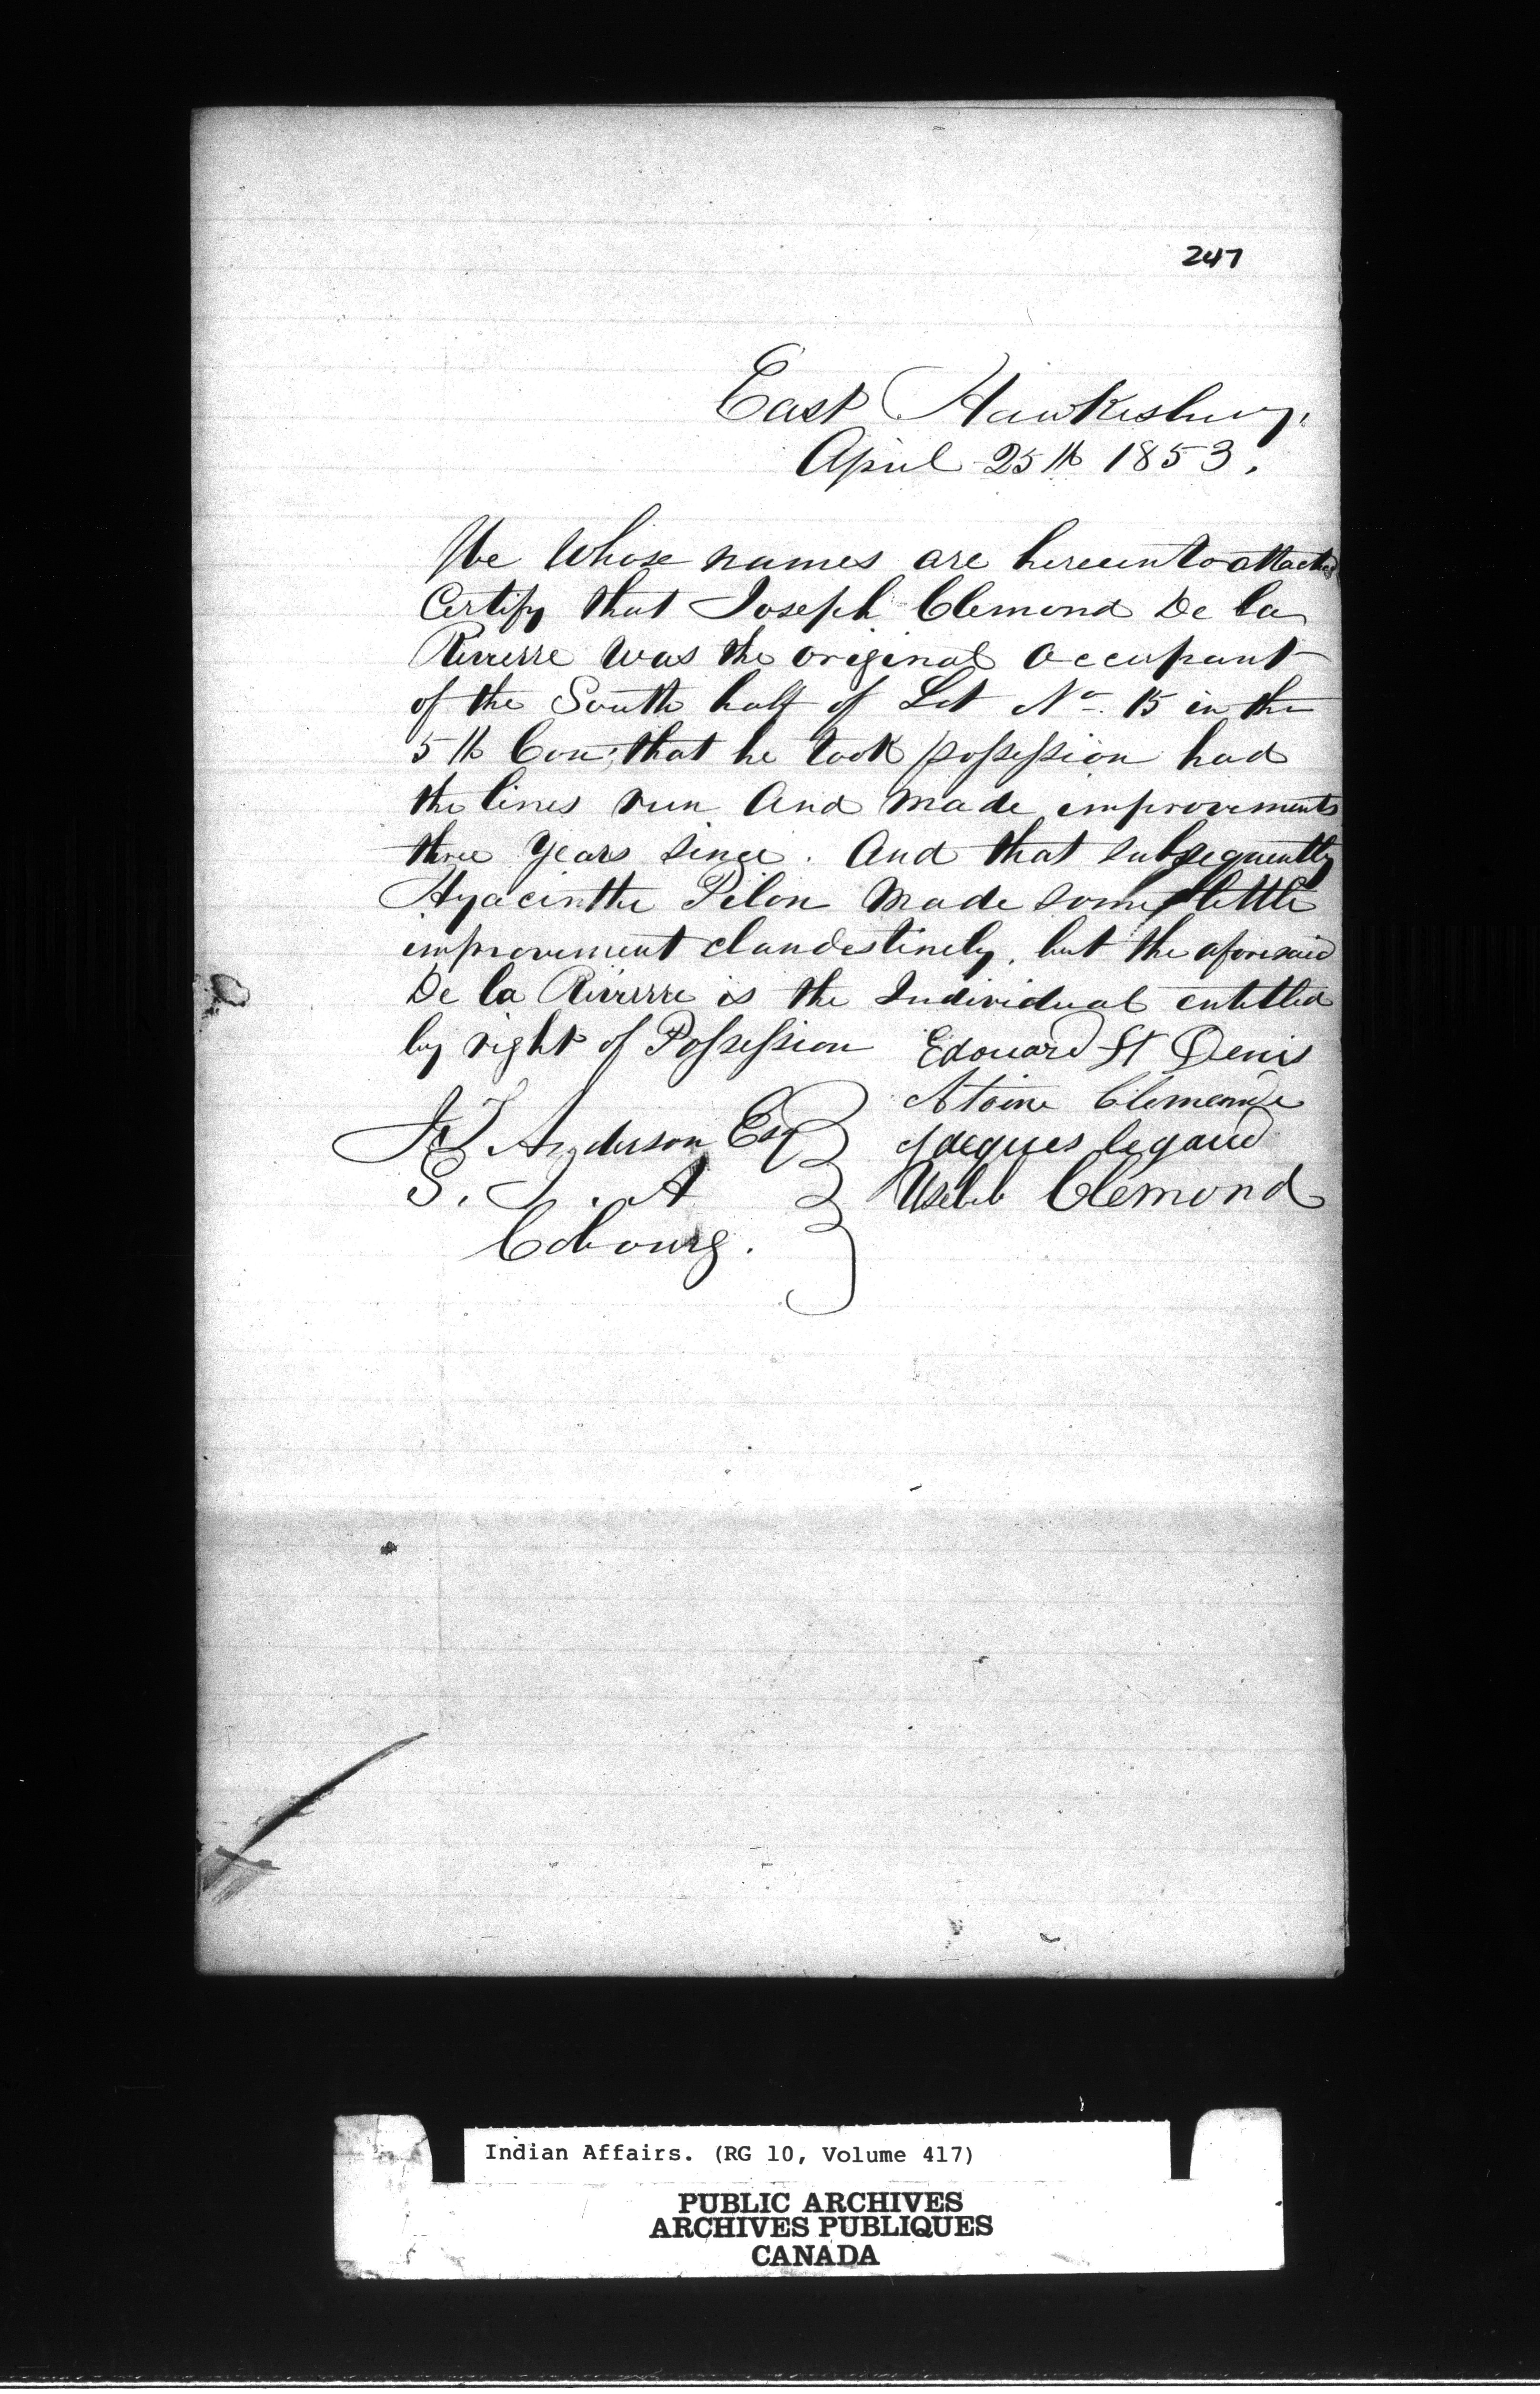 247
East Hawkesbury,
April 25th 1853.
We Whose names are hereunto attached
Certify that Joseph Clemond De la
Rivierre was the original Occupant
of the South half of Lot No. 15 in the
5th Con; that he took possession had
the lines run And Made improvements
three Years since. And that subsequently
Hyacinthe Pilon Made some little
improvement clandestinely, but the aforesaid
De la Rivierre is the Individual entitled
by right of Possession
Edouard St Denis
Atoine Clemende
Jacques legaud
Useb Clemond
Anderson Esq
S. I. A
Cobourg.
Indian Affairs. (RG 10, Volume 417)
PUBLIC ARCHIVES
ARCHIVES PUBLIQUES
CANADA